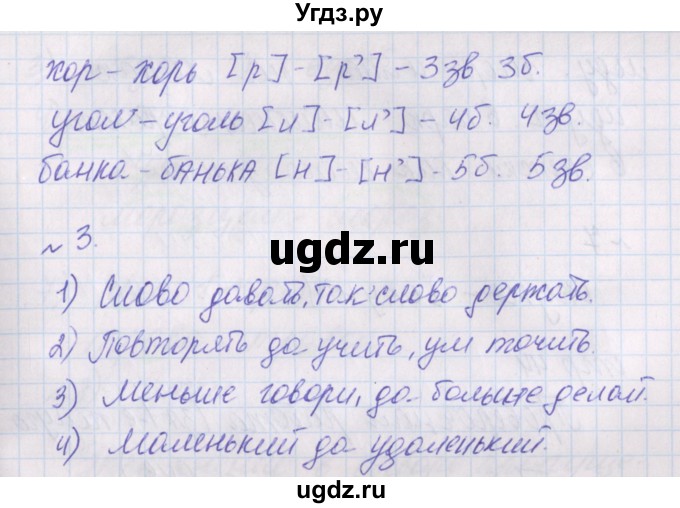 Угдз.ру
хор – хорь [р] – [р’] – 3зв 3б.
угол – уголь [л] - [л’] – 4б. 4зв.
банка – бАНЬКА [н] - [н’] - 5б. 5зв.
ugdz.ru
№ 3.
1) Слово давать, так слово держать.
2) Повторять да учить, ум точить.
3) Меньше говори, да больше делай.
4) Маленький да удаленький.
ugdz.ru